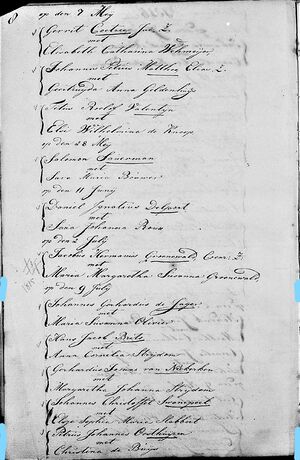 op den 7 Mey
Gerrit Coetzee Jac. Z.
met
Elisabeth Catharina Wehmeijer
Johannes Petrus Matthee Cloas. Z.
met
Geertruyda Anna Geldenhuys
Titus Roelof Valentyn
met
Elie Wilhelmina de
op den 28 Mey
Salomon Saverman
met
Sara Maria Brouwer
op den 11 Juny
Daniel Ignatius Delport
met
Sara Johanna Roux
op den 2 July
Jacobus Hermanus Groenewald Z.
met
Maria Margaretha Susanna Groenewald
op den 9 July
Johannes Gerhardus de Jager
met
Maria Susanna Olivier
Hans Jacob Brits
met
Anna Cornelia Strydom
Gerhardus van Niekerken
met
Margaretha Johanna Strydom
Johannes Christoffel Swanepoel
met
Elsje Sophia Maria Slabbert
Petrus Johannes Oosthuyzen
met
Christina de Bruyn